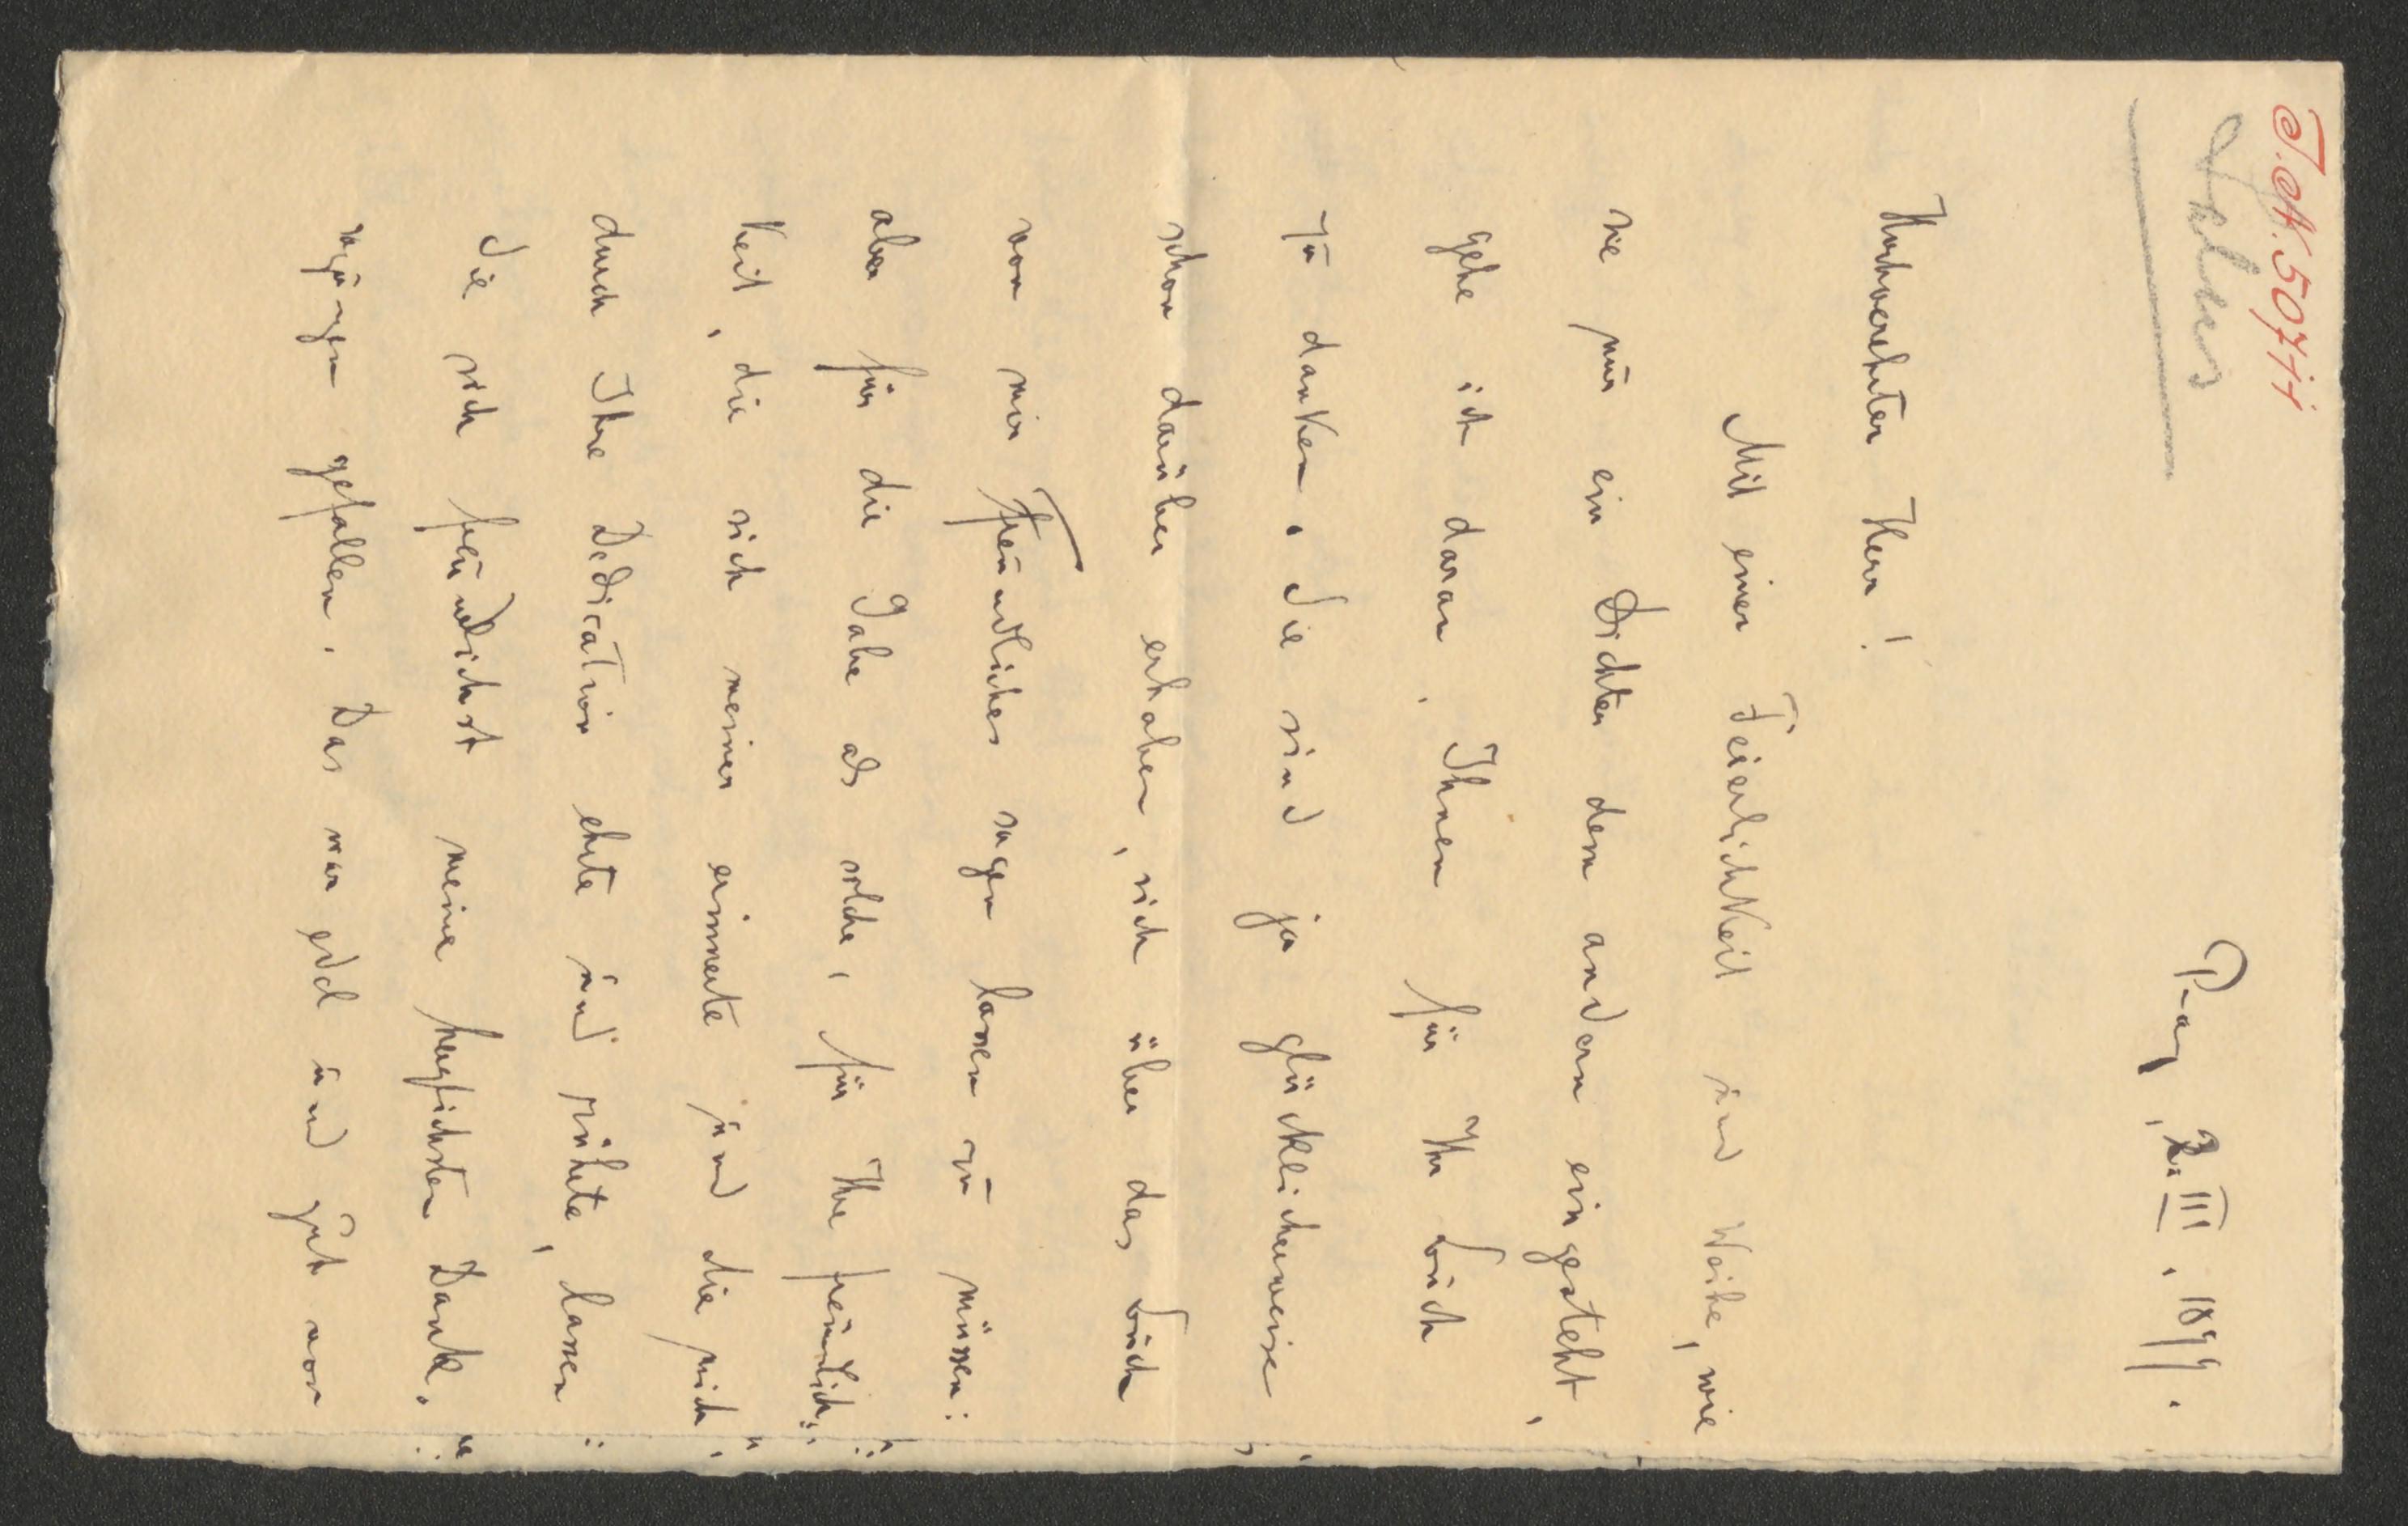 T.N. 50711
Salus
Prag, 2. III. 1899.
Hochverehrter Herr!
Mit einer Feierlichkeit und Weihe, wie
sie nur ein Dichter dem andern eingesteht,
gehe ich daran, Ihnen für Ihr Buch
zu danken. Sie sind ja glücklicherweise
schon darüber erhaben, sich über das Buch
von mir Freundliches sagen lassen zu müssen:
aber für die Gabe als solche, für Ihre freundlich-
keit, die sich meiner erinnerte und die mich
durch Ihre Dedication ehrte und rührte, lassen
Sie sich freundlichst meine herzlichsten Dank
gefallen. Das war edel und gut von